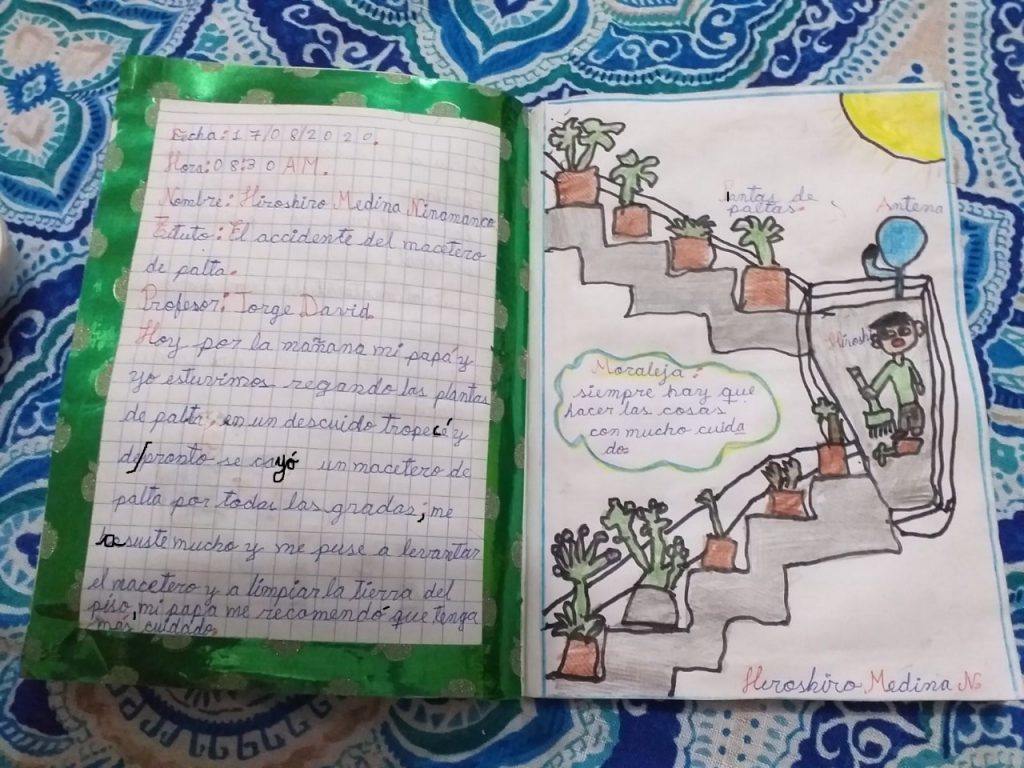 Fecha: 17/08/2020.
Hora: 08:30 AM.
Nombre: Hiroshiro Medina Ninamanco
Título: El accidente del macetero
de palta.
Profesor: Jorge David
Hoy por la mañana mi papá y
yo estuvimos regando las plantas
de palta, en un descuido tropecé y
de pronto se cayó un macetero de
palta por todas las gradas; me
asuste mucho y me puse a levantar
el macetero y a limpiar la tierra del
piso, mi papá me recomendó que tenga
más cuidado.
de
paltas.
Antena
Hirosh
Moraleja:
siempre hay que
hacer las cosas
con mucho cuida
do.
Hiroshiro Medina N